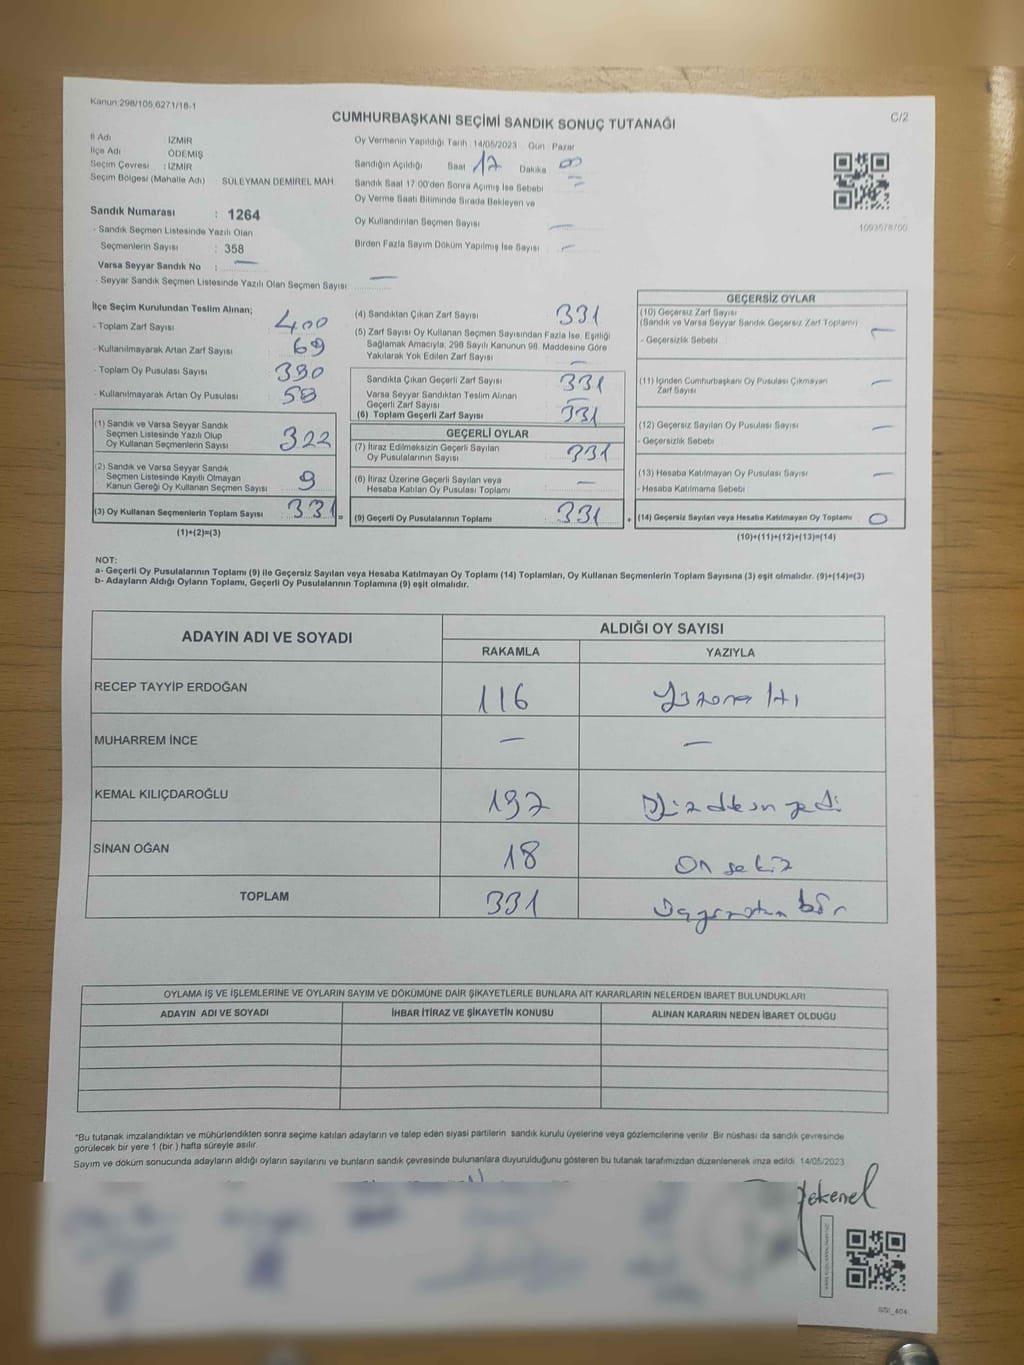 Kanun:298/105,6271/18-1
CUMHURBAŞKANI SEÇİMİ SANDIK SONUÇ TUTANAĞI
C/2
İl Adı İZMİR
İlçe Adı ÖDEMİŞ
Seçim Çevresi : İZMİR
Seçim Bölgesi (Mahalle Adı) SÜLEYMAN DEMİREL MAH.
Sandık Numarası : 1264
- Sandık Seçmen Listesinde Yazılı Olan
Seçmenlerin Sayısı : 358
Varsa Seyyar Sandık No : —
- Seyyar Sandık Seçmen Listesinde Yazılı Olan Seçmen Sayısı: —
Oy Vermenin Yapıldığı Tarih 14/05/2023 Gün : Pazar
Sandığın Açıldığı Saat 17 Dakika
Sandık Saat 17:00'den Sonra Açımış İse Sebebi
Oy Verme Saati Bitiminde Sırada Bekleyen ve
Oy Kullandırılan Seçmen Sayısı : —
Birden Fazla Sayım Döküm Yapılmış İse Sayısı : —
1093578700
İlçe Seçim Kurulundan Teslim Alınan;
- Toplam Zarf Sayısı : 400
- Kullanılmayarak Artan Zarf Sayısı : 69
- Toplam Oy Pusulası Sayısı : 390
- Kullanılmayarak Artan Oy Pusulası : 59
(1) Sandık ve Varsa Seyyar Sandık
Seçmen Listesinde Yazılı Olup
Oy Kullanan Seçmenlerin Sayısı : 322
(2) Sandık ve Varsa Seyyar Sandık
Seçmen Listesinde Kayıtlı Olmayan
Kanun Gereği Oy Kullanan Seçmen Sayısı : 9
(3) Oy Kullanan Seçmenlerin Toplam Sayısı : 331 =
(1)+(2)=(3)
(4) Sandıktan Çıkan Zarf Sayısı : 331
(5) Zarf Sayısı Oy Kullanan Seçmen Sayısından Fazla İse, Eşitliği
Sağlamak Amacıyla, 298 Sayılı Kanunun 98. Maddesine Göre
Yakılarak Yok Edilen Zarf Sayısı : —
Sandıkta Çıkan Geçerli Zarf Sayısı : 331
Varsa Seyyar Sandıktan Teslim Alınan
Geçerli Zarf Sayısı : —
(6) Toplam Geçerli Zarf Sayısı : 331
GEÇERLİ OYLAR
(7) İtiraz Edilmeksizin Geçerli Sayılan
Oy Pusulalarının Sayısı : 331
(8) İtiraz Üzerine Geçerli Sayılan veya
Hesaba Katılan Oy Pusulası Toplamı : —
(9) Geçerli Oy Pusulalarının Toplamı : 331 +
GEÇERSİZ OYLAR
(10) Geçersiz Zarf Sayısı
(Sandık ve Varsa Seyyar Sandık Geçersiz Zarf Toplamı) —
- Geçersizlik Sebebi :
(11) İçinden Cumhurbaşkanı Oy Pusulası Çıkmayan
Zarf Sayısı —
(12) Geçersiz Sayılan Oy Pusulası Sayısı —
- Geçersizlik Sebebi
(13) Hesaba Katılmayan Oy Pusulası Sayısı —
- Hesaba Katılmama Sebebi
(14) Geçersiz Sayılan veya Hesaba Katılmayan Oy Toplamı : 0
(10)+(11)+(12)+(13)=(14)
NOT:
a- Geçerli Oy Pusulalarının Toplamı (9) ile Geçersiz Sayılan veya Hesaba Katılmayan Oy Toplamı (14) Toplamları, Oy Kullanan Seçmenlerin Toplam Sayısına (3) eşit olmalıdır. (9)+(14)=(3)
b- Adayların Aldığı Oyların Toplamı, Geçerli Oy Pusulalarının Toplamına (9) eşit olmalıdır.
ADAYIN ADI VE SOYADI
ALDIĞI OY SAYISI
RAKAMLA YAZIYLA
RECEP TAYYİP ERDOĞAN 116 Yüzonaltı
MUHARREM İNCE — —
KEMAL KILIÇDAROĞLU 197 Yüzdoksanyedi
SİNAN OĞAN 18 Onsekiz
TOPLAM 331 Üçyüzotuzbir
OYLAMA İŞ VE İŞLEMLERİNE VE OYLARIN SAYIM VE DÖKÜMÜNE DAİR ŞİKAYETLERLE BUNLARA AİT KARARLARIN NELERDEN İBARET BULUNDUKLARI
ADAYIN ADI VE SOYADI İHBAR İTİRAZ VE ŞİKAYETİN KONUSU ALINAN KARARIN NEDEN İBARET OLDUĞU
*Bu tutanak imzalandıktan ve mühürlendikten sonra seçime katılan adayların ve talep eden siyasi partilerin sandık kurulu üyelerine veya gözlemcilerine verilir. Bir nüshası da sandık çevresinde
görülecek bir yere 1 (bir ) hafta süreyle asılır.
Sayım ve döküm sonucunda adayların aldığı oyların sayılarını ve bunların sandık çevresinde bulunanlara duyurulduğunu gösteren bu tutanak tarafımızdan düzenlenerek imza edildi. 14/05/2023